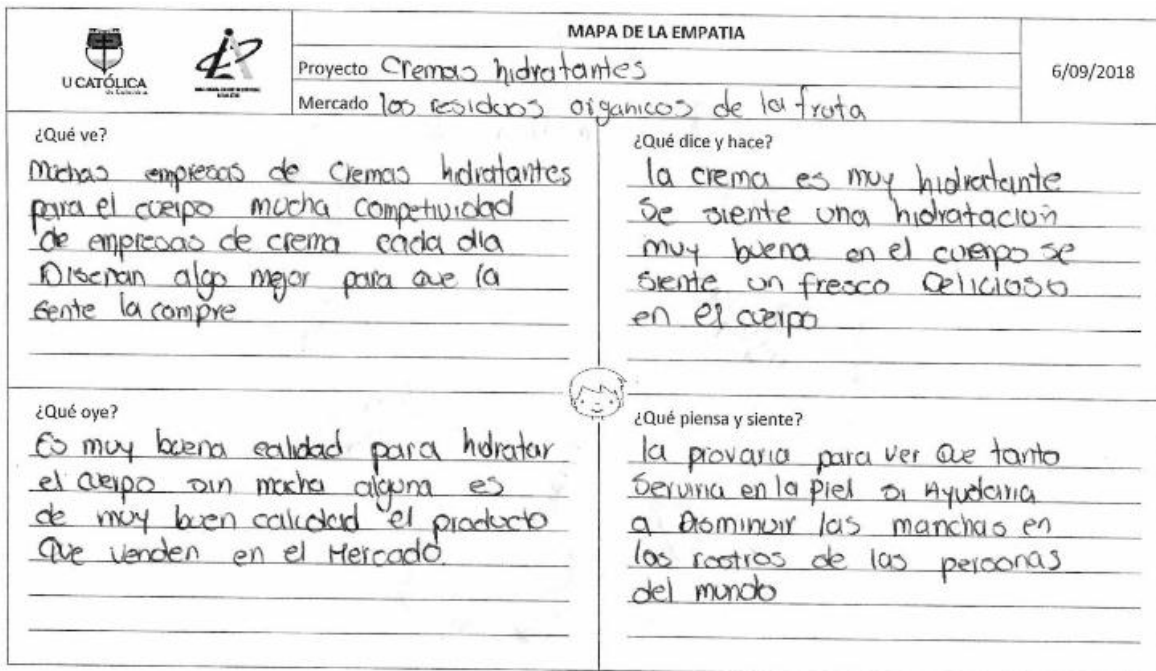 U CATÓLICA
de Colombia
MAPA DE LA EMPATIA
Proyecto Cremas hidratantes
Mercado los residuos organicos de la fruta
6/09/2018
¿Qué ve?
Muchas empresas de Cremas hidratantes
para el cuerpo mucha competividad
de empresas de crema cada dia
Diseñan algo mejor para que la
Gente la compre
¿Qué dice y hace?
la crema es muy hidratante
Se siente una hidratación
muy buena en el cuerpo se
siente un fresco Delicioso
en el cuerpo
¿Qué oye?
Es muy buena calidad para hidratar
el cuerpo sin macha alguna es
de muy buen calidad el producto
Que venden en el Mercado.
¿Qué piensa y siente?
la provaria para ver Que tanto
Serviria en la piel si Ayudaria
a Disminuir las manchas en
los rostros de las personas
del mundo